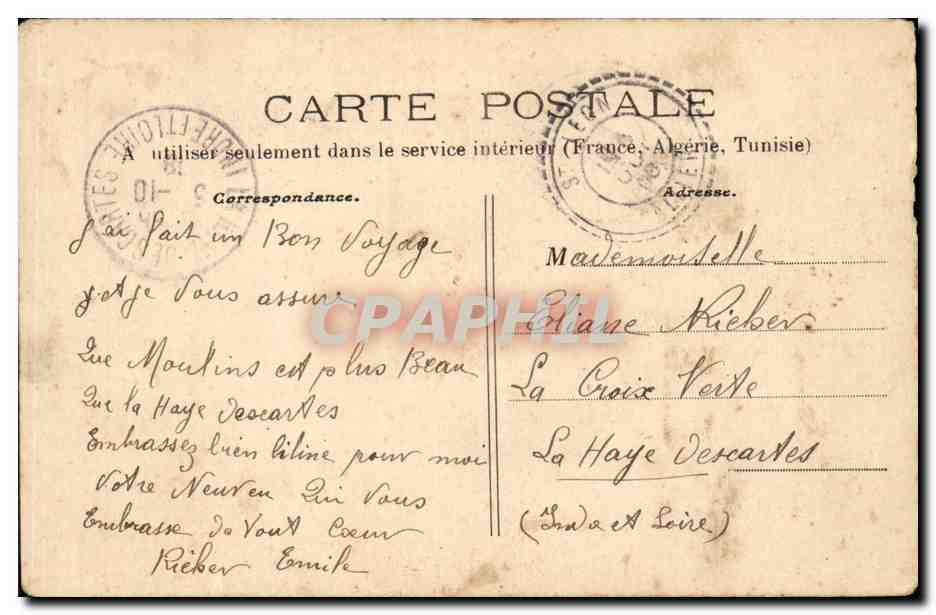 CARTE POSTALE
A utiliser seulement dans le service intérieur (France, Algérie, Tunisie)
Correspondance.
Adresse.
j'ai fait un Bon Voyage
et je vous assure
Que Moulins est plus Beau
Que la Haye Descartes
Embrassez bien liline pour moi
Votre Neuveu Qui Vous
Embrasse de Tout Cœur
Rieber Emile
Mademoiselle
Eliane Rieber
La Croix Verte
La Haye Descartes
(Indre et Loire)
ST LEON
INDRE ET LOIRE
CPAPHIL